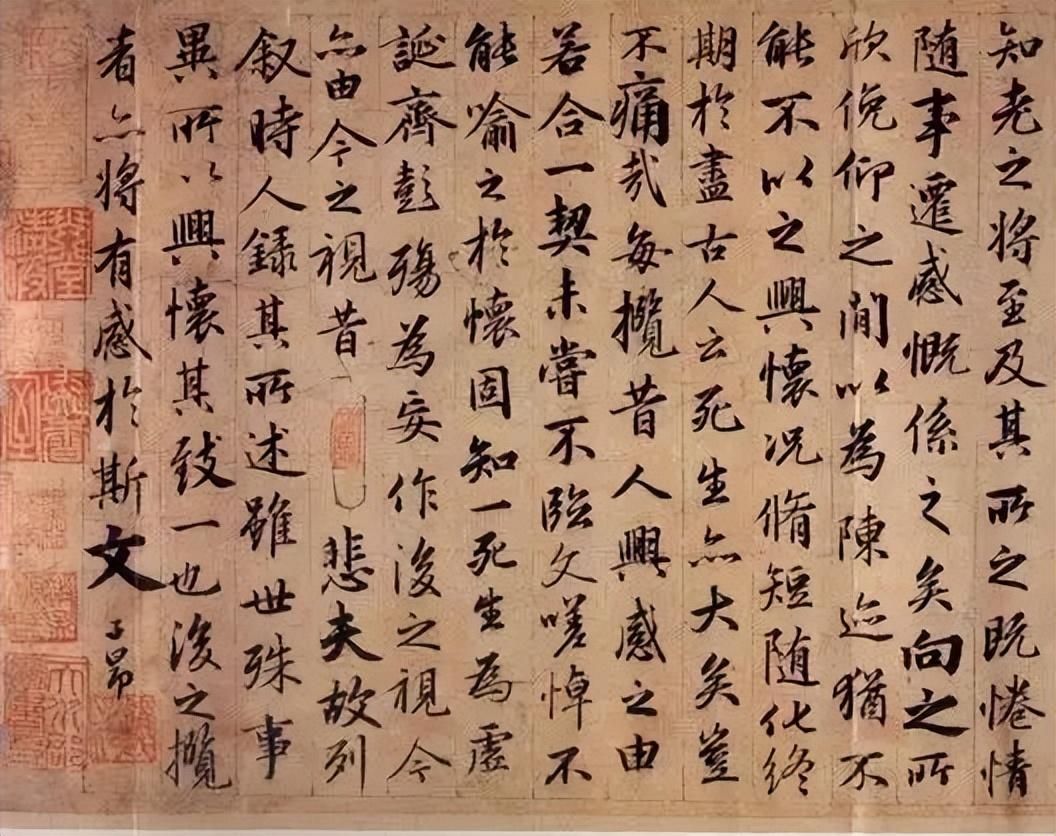 知老之將至及其所之既惓情
随事遷感慨係之矣向之所
欣俛仰之間以為陳迹猶不
能不以之興懷况脩短随化終
期於盡古人云死生亦大矣豈
不痛哉每攬昔人興感之由
若合一契未嘗不臨文嗟悼不
能喻之於懷固知一死生為虛
誕齊彭殤為妄作後之視今
亦由今之視昔 悲夫故列
叙時人録其所述雖世殊事
異所以興懷其致一也後之攬
者亦將有感於斯文 子昂